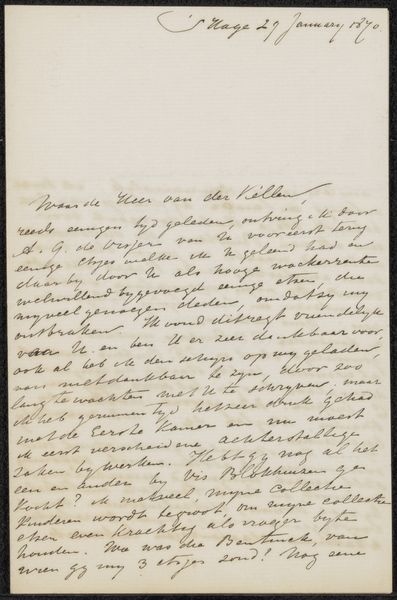 's Hage 29 January 1870
Waarde Heer van der Kellen,
reeds eenigen tijd geleden, ontving ik door
A. G. de Visjers van U vooreerst terug
eenige etsjes welke ik U geleend had en
daarby, door U als hooge woekerrente
welwillend bygevoegd eenige etsen, die
my veel genoegen deden, omdat zy my
ontbraken. Ik vond dit regt vriendelyk
van U en ben U er zeer dankbaar voor,
ook al heb ik den schyn op my geladen,
van niet dankbaar te zyn, door zoo
lang te wachten met U te schryven, maar
ik heb geruimen tyd het zeer druk gehad
met de Eerste Kamer en nu moest
ik eerst verscheidene achterstallige
zaken bywerken. Hebt gy nog al het
een en ander by Vis Blokhuizen ge
kocht? ik niet veel, myne collectie
kinderen wordt te groot, om myne collectie
etsen even krachtig als vroeger byte
houden. Wie was die Bentinck, van
wien gy my 3 etsjes zond? Nog eene